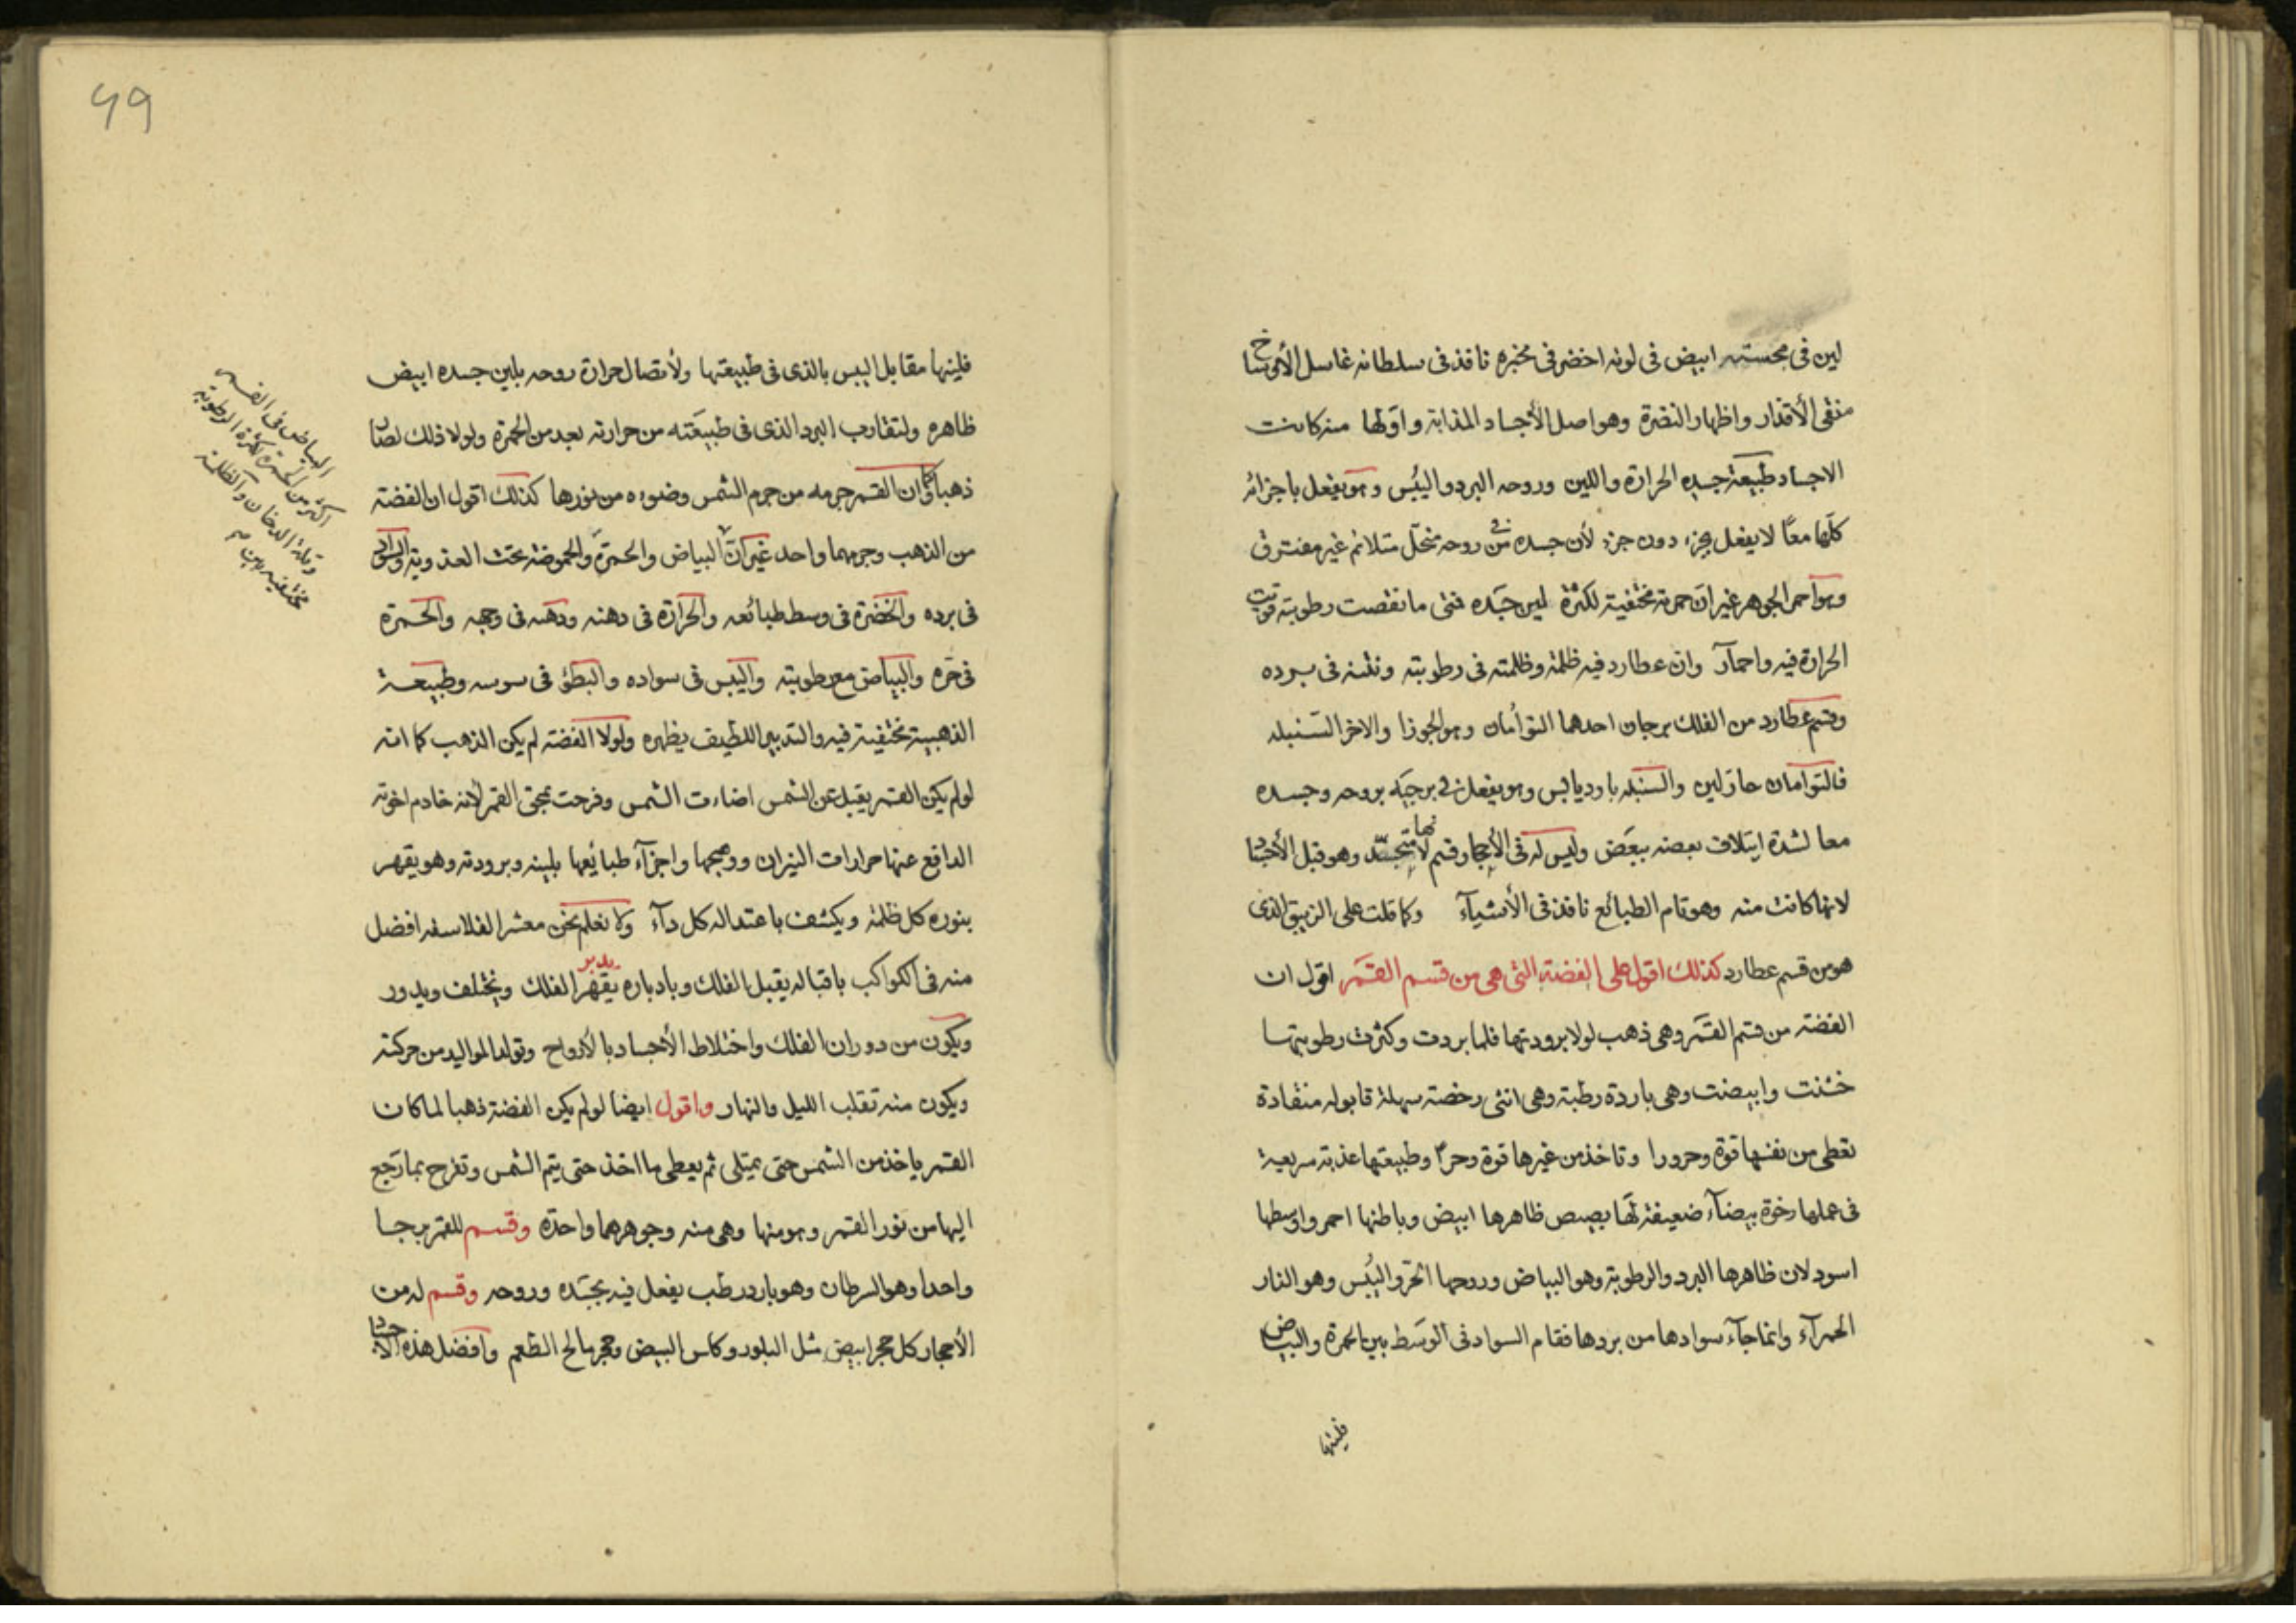 لين فى مجسته ابيض فى لونه اخضر فى مخبره نافذ فى سلطانه غاسل الأوساخ
منقى الأقذار واظهار النضرة وهو اصل الأجساد المذابة واولها منه كانت
الاجساد طبيعة جسده الحرارة واللين وروحه البرد واليُبس وهو يفعل باجزائه
كلّها معًا لا يفعل بجزء دون جزء لأن جسده فى روحه منحلّ متلائم غير مفترق
وهو احمر الجوهر غير انّ حمرته مختفية لكثرة لين جسَده فمتى ما نقصت رطوبته قويت
الحرارة فيه واحمارّ وان عطارد فيه ظلمة وظلمته فى رطوبته ونتنه فى برده
وقسم عطارد من الفلك برجان احدهما التوأمان وهو الجوزا والاخر السنبله
فالتوأمان حار لين والسنبله بارد يابس وهو يفعل فى برجَيه بروحه وجسده
معا لشدة ايتلاف بعضه ببَعض وليس له فى الأحجار قسم لانها متجسّد وهو قبل الأجساد
لانها كانت منه وهو تام الطبائع نافذ فى الأشيآء وكما قلت على الزيبق الذى
هو من قسم عطارد كذلك اقول على الفضة التى هى من قسم القمَر اقول ان
الفضة من قسم القمَر وهى ذهب لولا برودتها فلما بردت وكثرت رطوبتها
خشنت وابيضت وهى باردة رطبة وهى انثى رخصة سهلة قابوله منقادة
تعطى من نفسها قوة وحرورا وتاخذ من غيرها قوة وحرًا وطبيعتها عذبة سريعة
فى عملها رخوة بيضآء ضعيفة لها بصيص ظاهرها ابيض وباطنها احمر واوسطها
اسود لان ظاهرها البرد والرطوبة وهو البياض وروحها الحرّ واليُبس وهو النار
الحمرآء وانما جآء سوادها من بردها فقام السواد فى الوسَط بين الحمرة والبياض
فلينها
فلينها مقابل اليبس بالذى فى طبيعتها ولأتصال حرارة روحه بلين جسده ابيض
ظاهره ولتقارب البرد الذى فى طبيعَته من حرارته بعد من الحمرة ولولا ذلك لصار
ذهبا وكما ان القمر جرمه من جرم الشمس وضوءه من نورها كذلك اقول ان الفضة
من الذهب وجرمهما واحد غير انّ البياض والحمرة والحموضة تحت العذوبة والسواد
فى برده والخضرة فى وسط طبائعه والحرارة فى دهنه ودهنه فى وجهه والحمرة
فى حَره والبياض مع رطوبته واليبس فى سواده والبطؤ فى سوسه وطبيعة
الذهبية مختفية فيه والتدبير اللطيف يظهره ولولا الفضة لم يكن الذهب كما انه
لو لم يكن القمر يقبل عن الشمس اضاءت الشمس وفرحت بمجئ القمر لانه خادم اخوته
الدافع عنها حرارات النيران ووهجها واجزآء طبائعها بلينه وبرودته وهو يقهر
بنوره كل ظلمة ويكشف باعتداله كل دآء ولا نعلم نحن معشر الفلاسفه افضل
منه فى الكواكب باقباله يقبل الفلك وبادباره يقهر الفلك ويختلف ويدور
يدبر
ويكون من دوران الفلك واختلاط الأجساد بالأرواح وتولد المواليد من حركته
ويكون منه تقلب الليل والنهار واقول ايضا لو لم يكن الفضة ذهبا لما كان
القمر ياخذ من الشمس حتى يمتلى ثم يعطى ما اخذ حتى يتم الشمس وتفرح بما رَجع
اليها من نور القمر وهو منها وهى منه وجوهرهما واحدَة وقسم للقمر برجا
واحدا وهو السرطان وهو بارد رطب يفعل فيه بجسَده وروحه وقسم له من
الأحجار كل حجر ابيض مثل البلور وكاس البيض وحجر مالح الطعم وافضل هذه الاحجار
البياض فى القمر
اكثر من الحمرة لكثرة الرطوبة
وقلة الدخان والظلمة
مختفيه
٤٩